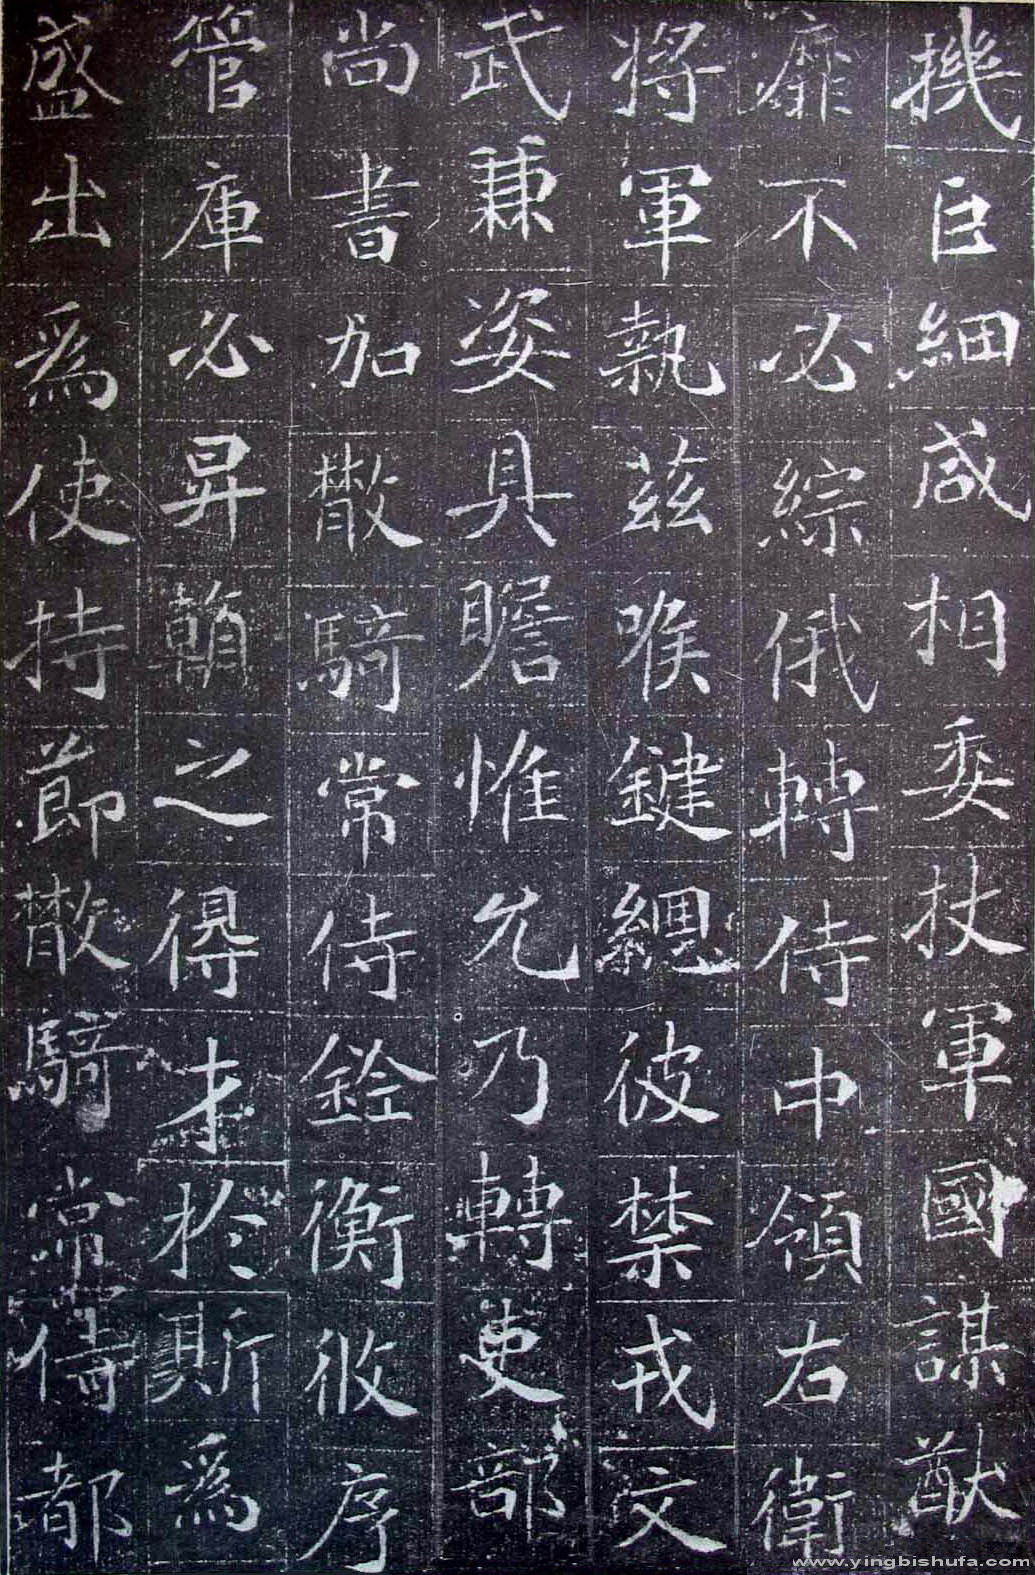 機巨細咸相委杖軍國謀猷
靡不必綜俄轉侍中領右衛
將軍執茲喉鍵總彼禁戎文
武兼姿具瞻惟允乃轉吏部
尚書加散騎常侍銓衡攸序
管庫必昇賴之得才於斯爲
盛出爲使持節散騎常侍都
www.yingbishufa.com